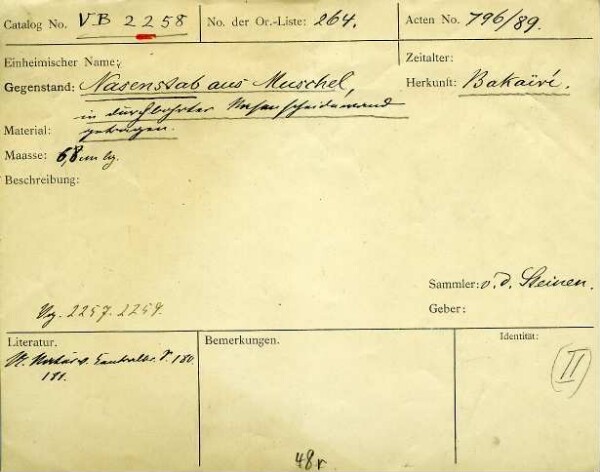 Catalog No. VB 2258
No. der Or.-Liste: 264.
Acten No. 796/89.
Einheimischer Name:
Zeitalter:
Gegenstand: Nasenstab aus Muschel,
Herkunft: Bakaïrí.
in durchbohrter Nasenscheidewand
Material: getragen.
Maasse: 6,8 cm lg.
Beschreibung:
Sammler: v. d. Steinen.
Geber:
Vg. 2257. 2259.
Literatur.
Bemerkungen.
Identität:
Centralbr. 180.
181.
II
48r